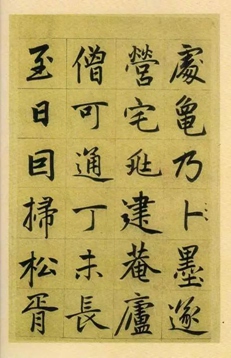 處龜乃卜墨遂
營宅兆建菴廬
僧可通丁未長
至日因掃松胥